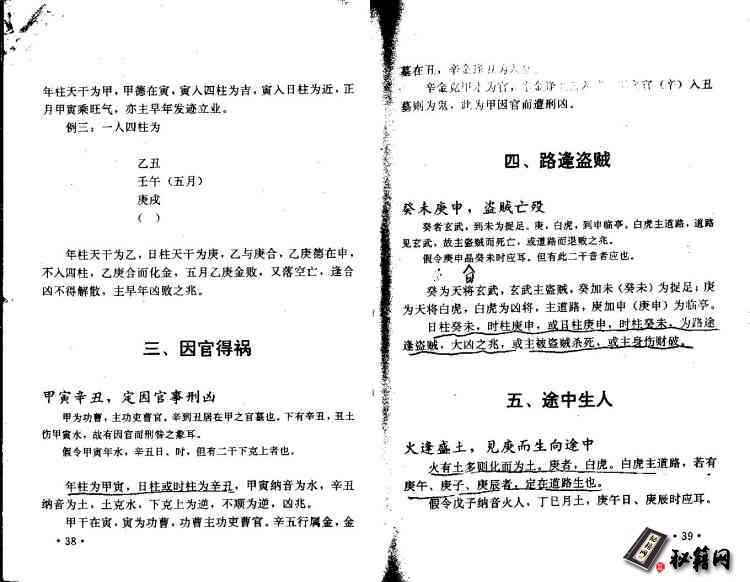 年柱天干为甲，甲德在寅，寅入四柱为吉，寅入日柱为近，正
月甲寅乘旺气，亦主早年发迹立业。
例三：一人四柱为
乙丑
壬午（五月）
庚戌
（ ）
年柱天干为乙，日柱天干为庚，乙与庚合，乙庚德在申，
不入四柱，乙庚合而化金，五月乙庚金败，又落空亡，逢合
凶不得解散，主早年凶败之兆。
三、因官得祸
甲寅辛丑，定因官事刑凶
甲为功曹，主功吏曹官。辛到丑居在甲之官墓也。下有辛丑，丑土
伤甲寅水，故有因官而刑咎之象耳。
假令甲寅年水，辛丑日、时，但有二干下克上者也。
年柱为甲寅，日柱或时柱为辛丑，甲寅纳音为水，辛丑
纳音为土，土克水，下克上为逆，不顺为逆，凶兆。
甲干在寅，寅为功曹，功曹主功吏曹官。辛五行属金，金
·38·
墓在丑，辛金择丑为
辛金克甲木为官，官（辛）入丑
墓则为鬼，此为甲因官而遭刑凶。
四、路逢盗贼
癸未庚申，盗贼亡殁
癸者玄武，到未为捉足。庚，白虎，到申临亭。白虎主道路，道路
见玄武，故主盗贼而死亡，或道路而退败之兆。
假令庚申品癸未时应耳。但有此二干音者应也。
日
癸为天将玄武，玄武主盗贼，癸加未（癸未）为捉足；庚
为天将白虎，白虎为凶将，主道路，庚加申（庚申）为临亭。
日柱癸未，时柱庚申，或日柱庚申，时柱癸未，为路途
逢盗贼，大凶之兆，或主被盗贼杀死，或主身伤财破。
五、途中生人
火逢盛土，见庚而生向途中
火有土多则化而为土。庚者，白虎。白虎主道路，若有
庚午、庚子、庚辰者，定在道路生也。
假令戊子纳音火人，丁巳月土，庚午日、庚辰时应耳。
·39·
秘籍网